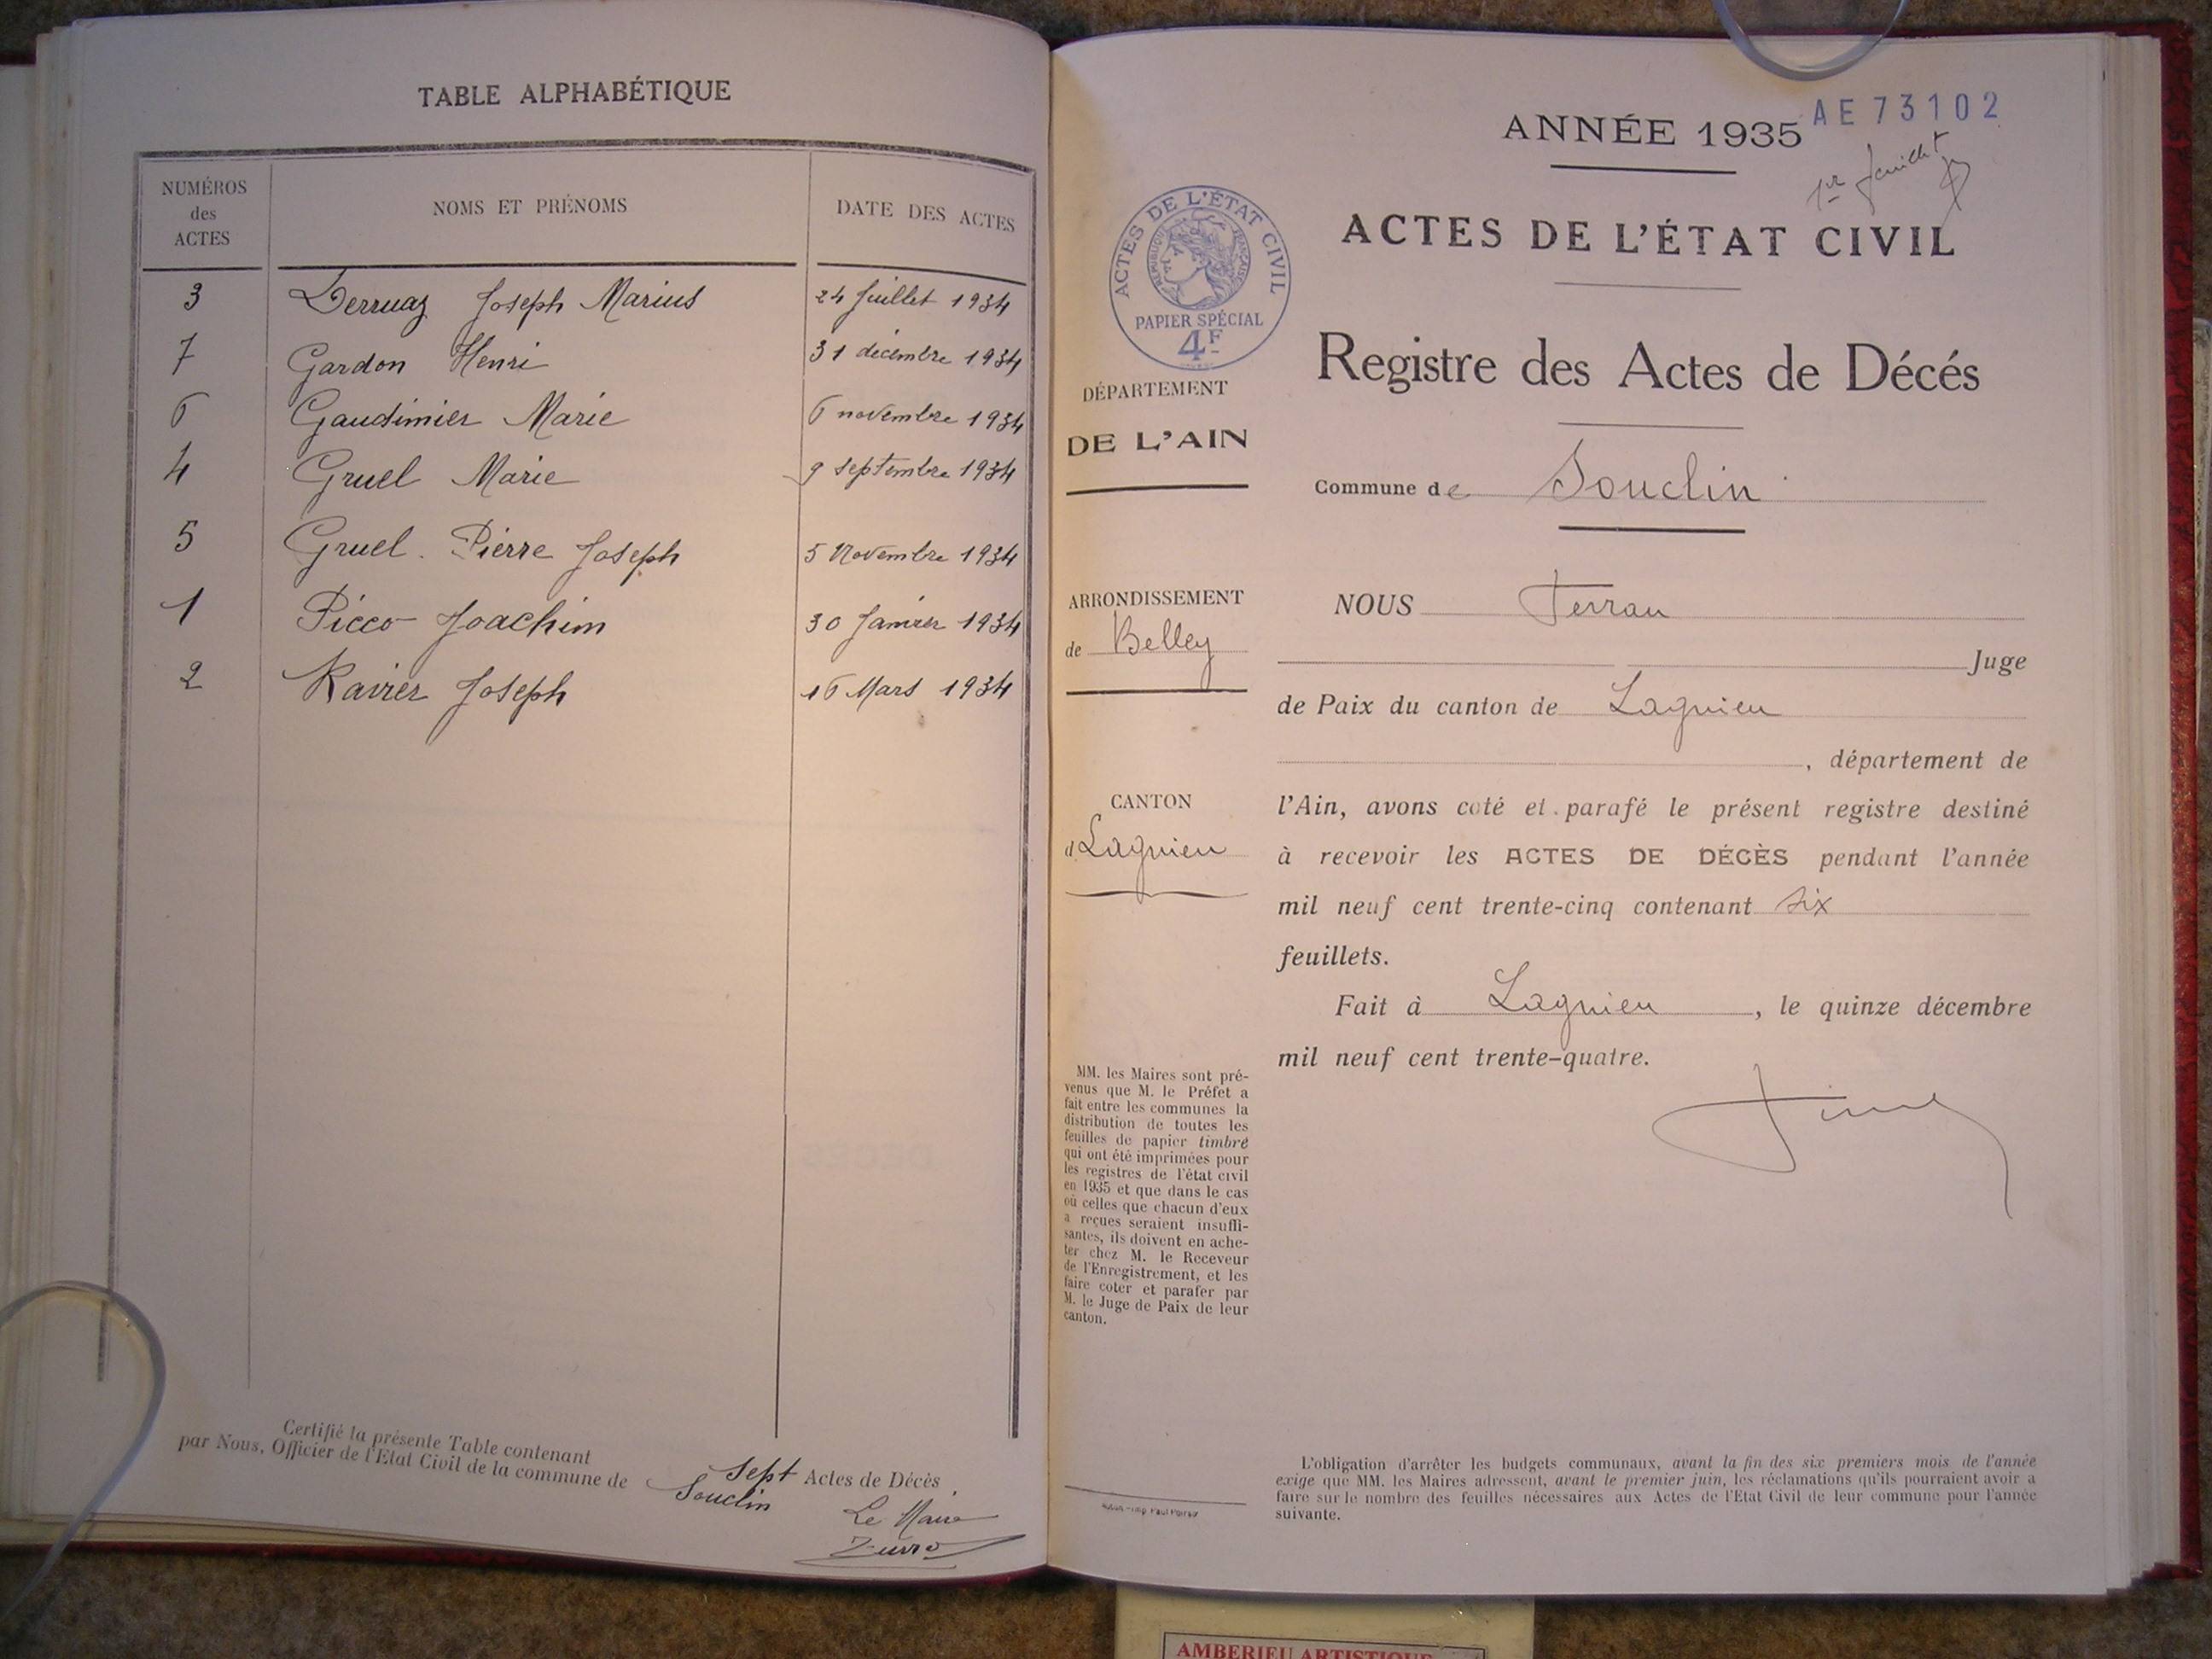 TABLE ALPHABÉTIQUE
NUMÉROS des ACTES NOMS ET PRÉNOMS DATE DES ACTES
3 Derruaz Joseph Marius 24 Juillet 1934
7 Gardon Henri 31 décembre 1934
6 Gaudimier Marie 6 novembre 1934
4 Gruel Marie 9 septembre 1934
5 Gruel. Pierre Joseph 5 Novembre 1934
1 Picco Joachim 30 Janvier 1934
2 Ravier Joseph 16 Mars 1934
Certifié la présente Table contenant sept Actes de Décès
par Nous, Officier de l'Etat Civil de la commune de Souclin
Le Maire
ANNÉE 1935
AE73102
1er feuillet
ACTES DE L'ÉTAT CIVIL
ACTES DE L'ÉTAT CIVIL
RÉPUBLIQUE FRANÇAISE
PAPIER SPÉCIAL
4F
Registre des Actes de Décés
DÉPARTEMENT
DE L'AIN
Commune de Souclin
ARRONDISSEMENT
de Belley
CANTON
d Lagnieu
NOUS Ferran
Juge
de Paix du canton de Lagnieu
, département de
l'Ain, avons coté et parafé le présent registre destiné
à recevoir les ACTES DE DÉCÈS pendant l'année
mil neuf cent trente-cinq contenant six
feuillets.
Fait à Lagnieu, le quinze décembre
mil neuf cent trente-quatre.
MM. les Maires sont pré-
venus que M. le Préfet a
fait entre les communes la
distribution de toutes les
feuilles de papier timbré
qui ont été imprimées pour
les registres de l'état civil
en 1935 et que dans le cas
où celles que chacun d'eux
a reçues seraient insuffi-
santes, ils doivent en ache-
ter chez M. le Receveur
de l'Enregistrement, et les
faire coter et parafer par
M. le Juge de Paix de leur
canton.
L'obligation d'arrêter les budgets communaux, avant la fin des six premiers mois de l'année
exige que MM. les Maires adressent, avant le premier juin, les réclamations qu'ils pourraient avoir a
faire sur le nombre des feuilles nécessaires aux Actes de l'Etat Civil de leur commune pour l'année
suivante.
AMBERIEU ARTISTIQUE